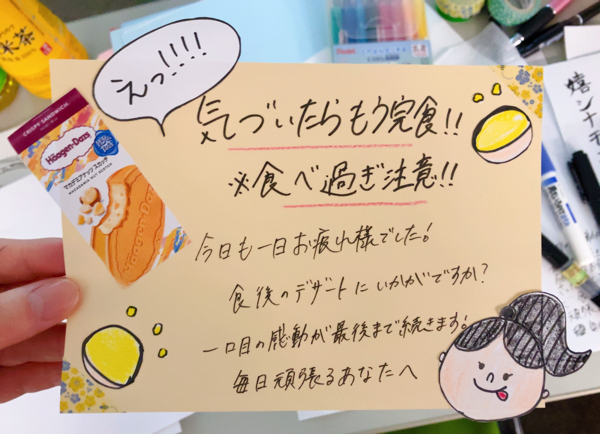 えっ!!!!
気づいたらもう完食!!
※食べ過ぎ注意!!
今日も一日お疲れ様でした!
食後のデザートにいかがですか?
一口目の感動が最後まで続きます!
毎日頑張るあなたへ
CRISPY SANDWICH
Häagen-Dazs
マカデミアナッツ スカッチ
MACADAMIA NUT SCOTCH
Häagen-Dazs
米茶
Pentel